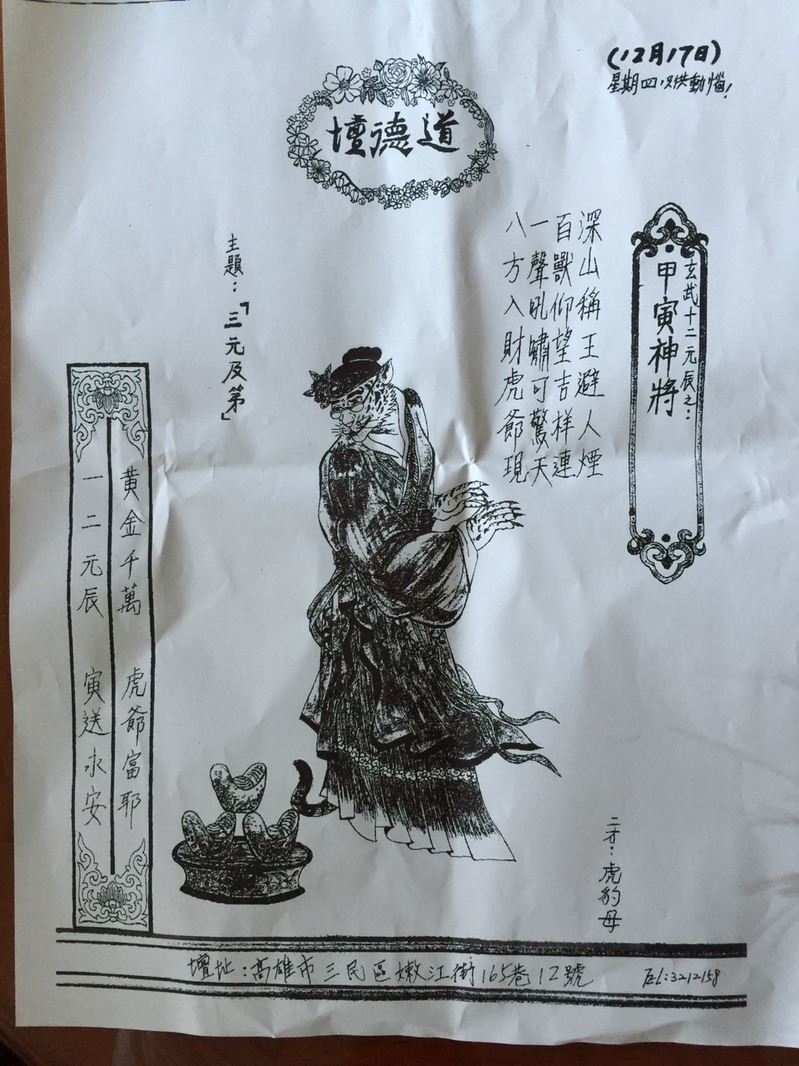 (12月17日)
星期四:只供動惱!
道德壇
玄武十二元辰之:
甲寅神將
深山稱王避人煙
百獸仰望吉样連
一聲吼嘯可驚天
八方入財虎爺現
主題:「三元及第」
黃金千萬 虎爺富耶
一二元辰 寅送永安
二才:虎豹母
壇址:高雄市三民區嫩江街165巷12號
TEL:3212158